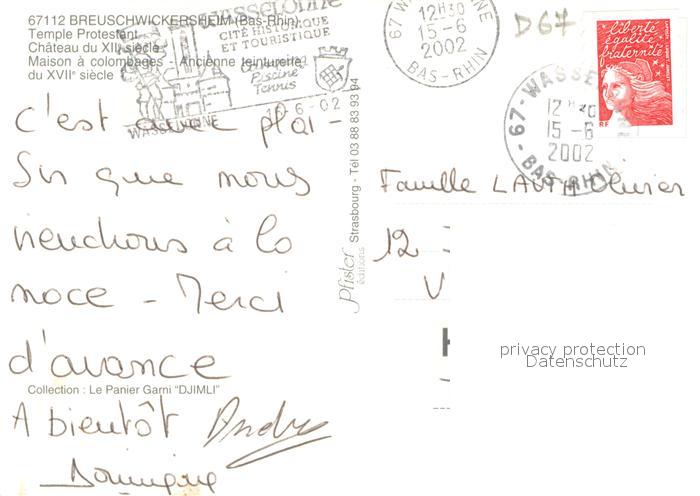 67112 BREUSCHWICKERSHEIM (Bas-Rhin)
Temple Protestant
Château du XIIe siècle
Maison à colombages - Ancienne teinturerie
du XVIIe siècle
WASSELONNE
CITÉ HISTORIQUE
ET TOURISTIQUE
Camping
Piscine
Tennis
WASSELONNE
-6-02
67 WASSELONNE
12H30
15-6
2002
BAS-RHIN
D67
liberté
égalité
fraternité
RF
67-WASSELONNE
12H30
15-6
2002
BAS-RHIN
C'est avec plai-
sir que nous
viendrons à la
noce - Merci
d'avance
A bientôt André
Dominique
Collection : Le Panier Garni "DJIMLI"
Pfister éditions Strasbourg - Tél 03 88 83 93 94
Famille LAUTH Olivier
12
V
privacy protection
Datenschutz